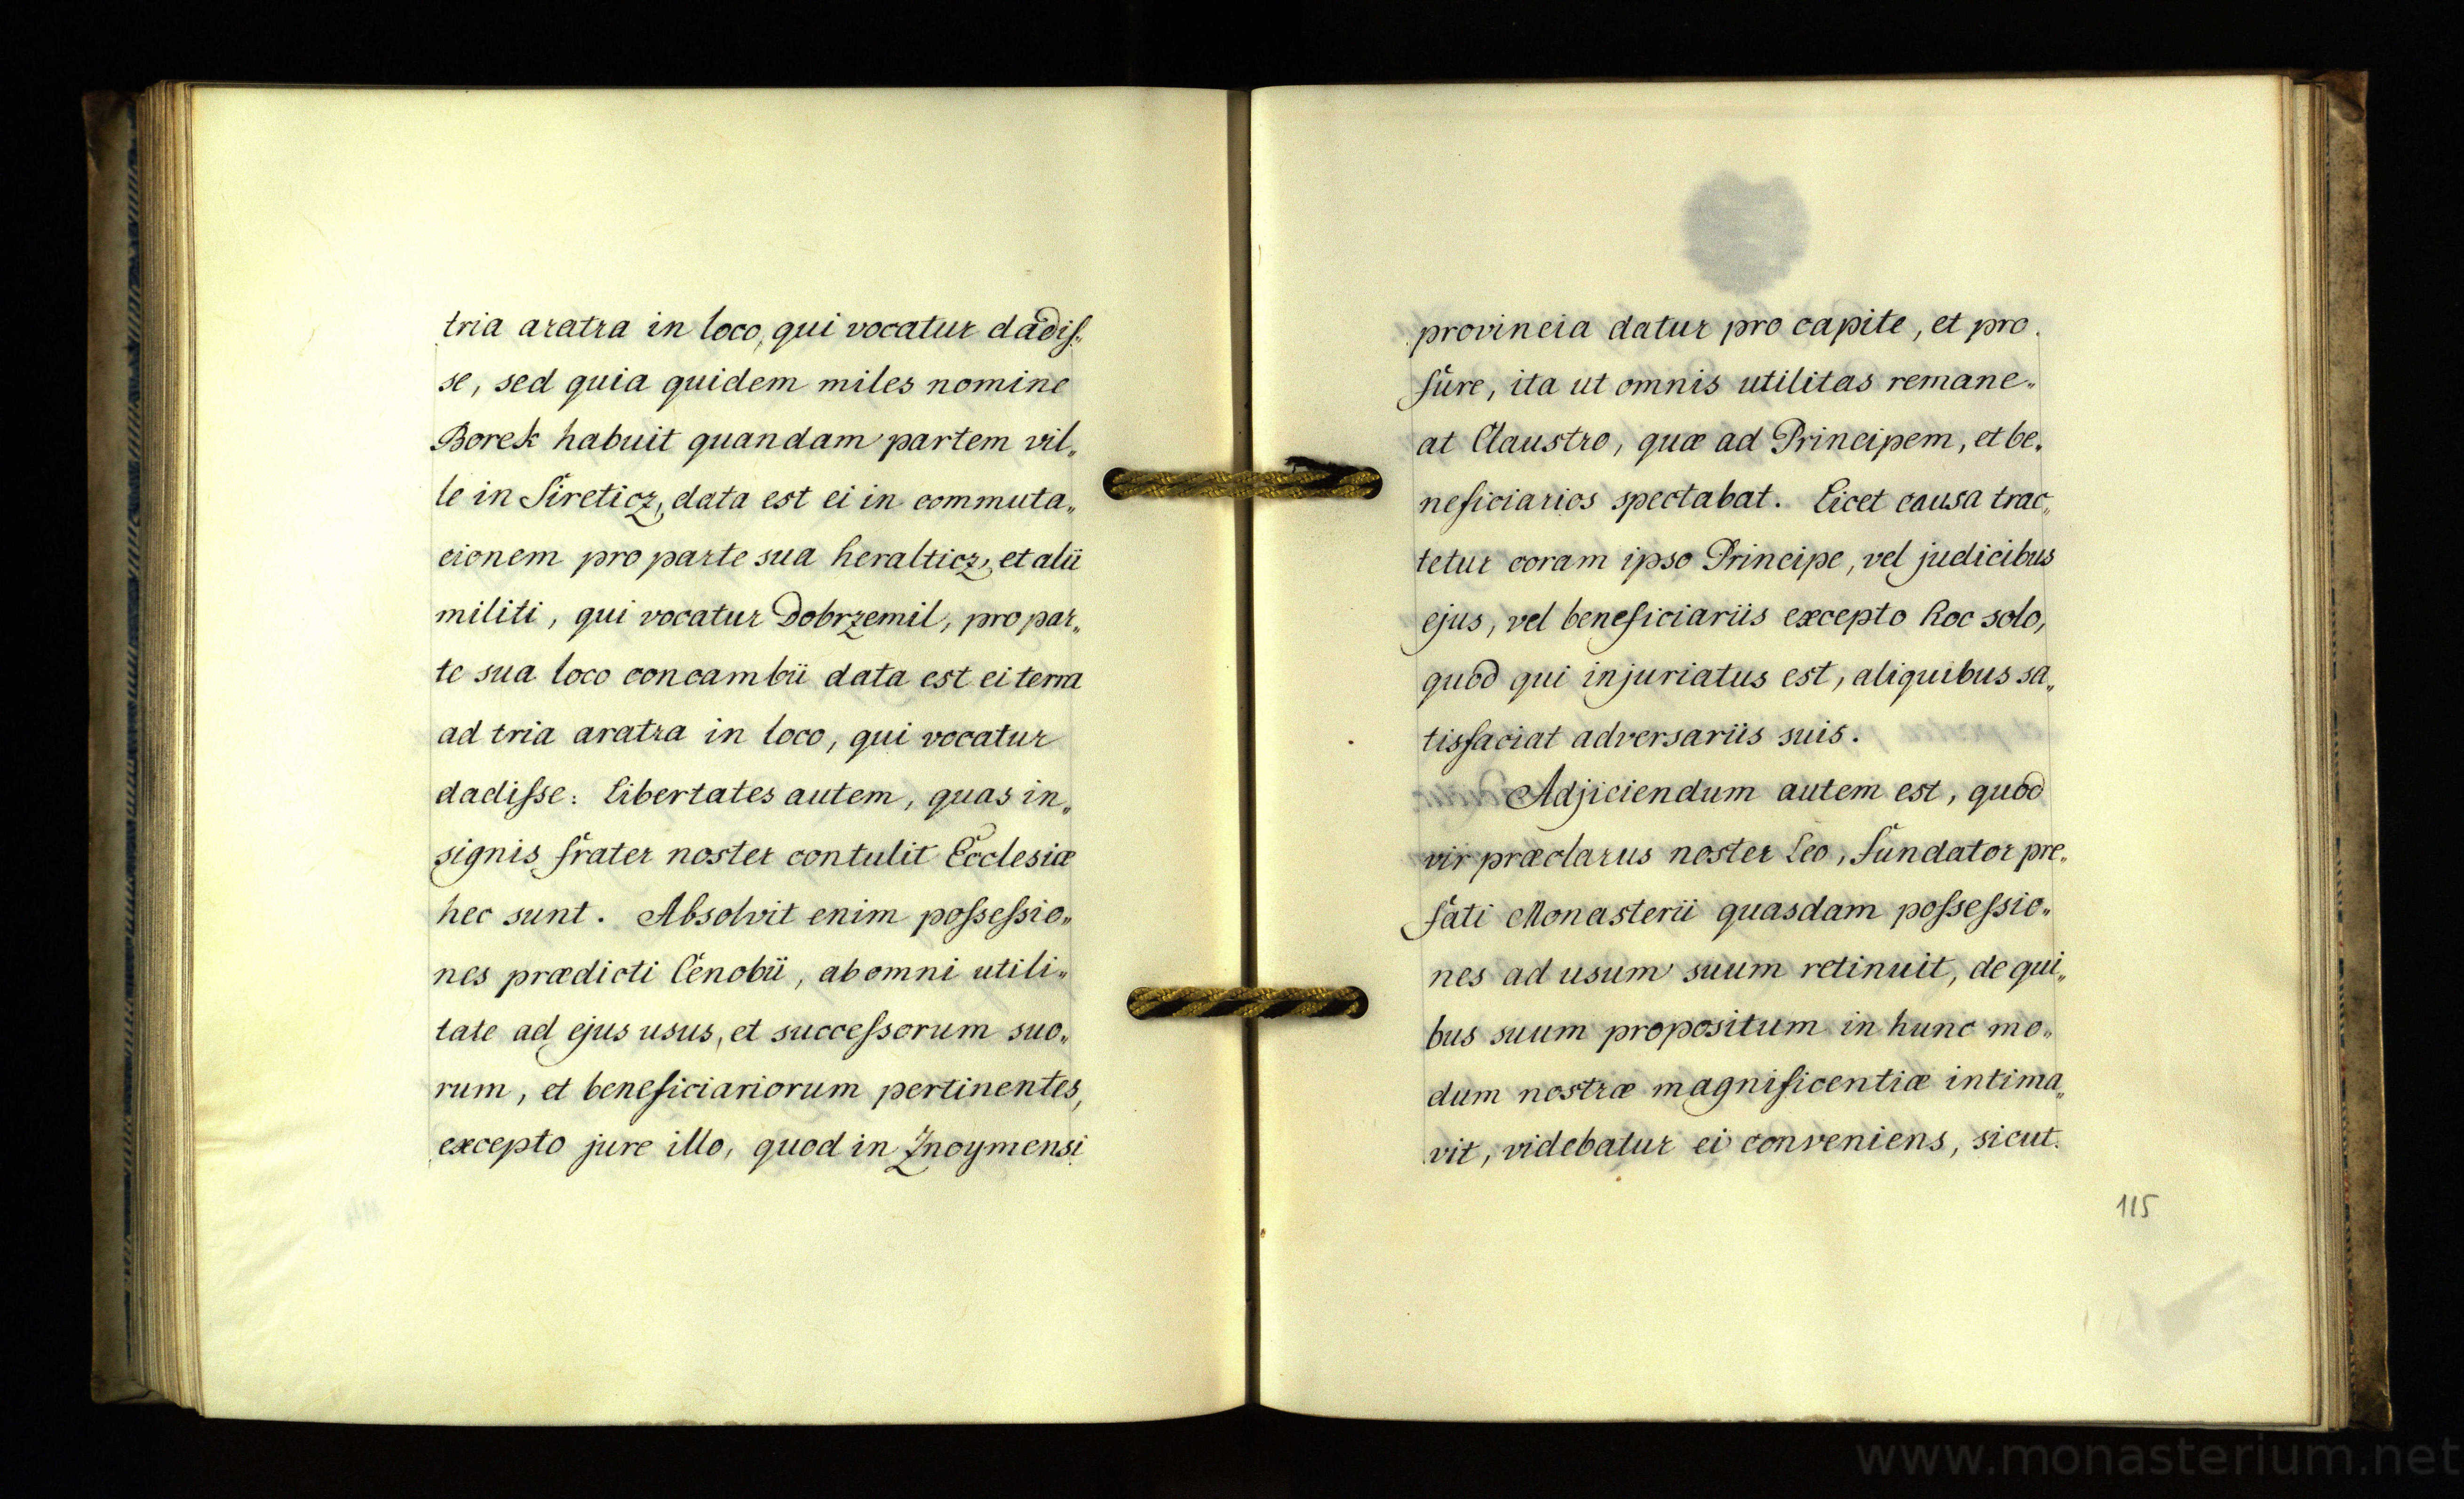 tria aratra in loco, qui vocatur dadiſ„
se, sed quia quidem miles nomine
Borek habuit quandam partem vil„
le in Sireticz, data est ei in commuta„
cionem pro parte sua heralticz, et alii
militi, qui vocatur Dobrzemil, pro par„
te sua loco concambii data est ei terra
ad tria aratra in loco, qui vocatur
dadiſse: Libertates autem, quas in„
signis frater noster contulit Ecclesiæ
hec sunt. Absolvit enim poſseſsio„
nes prædicti Cenobii, ab omni utili„
tate ad ejus usus, et succeſsorum suo„
rum, et beneficiariorum pertinentes,
excepto jure illo, quod in Znoymensi
provincia datur pro capite, et pro
fure, ita ut omnis utilitas remane„
at Claustro, quæ ad Principem, et be„
neficiarios spectabat. Licet causa trac„
tetur coram ipso Principe, vel judicibus
ejus, vel beneficiariis excepto hoc solo,
quod qui injuriatus est, aliquibus sa„
tisfaciat adversariis suis.
Adjiciendum autem est, quod
vir præclarus noster Leo, fundator pre„
fati Monasterii quasdam poſseſsio„
nes ad usum suum retinuit, de qui„
bus suum propositum in hunc mo„
dum nostræ magnificentiæ intima„
vit, videbatur ei conveniens, sicut
115
www.monasterium.net